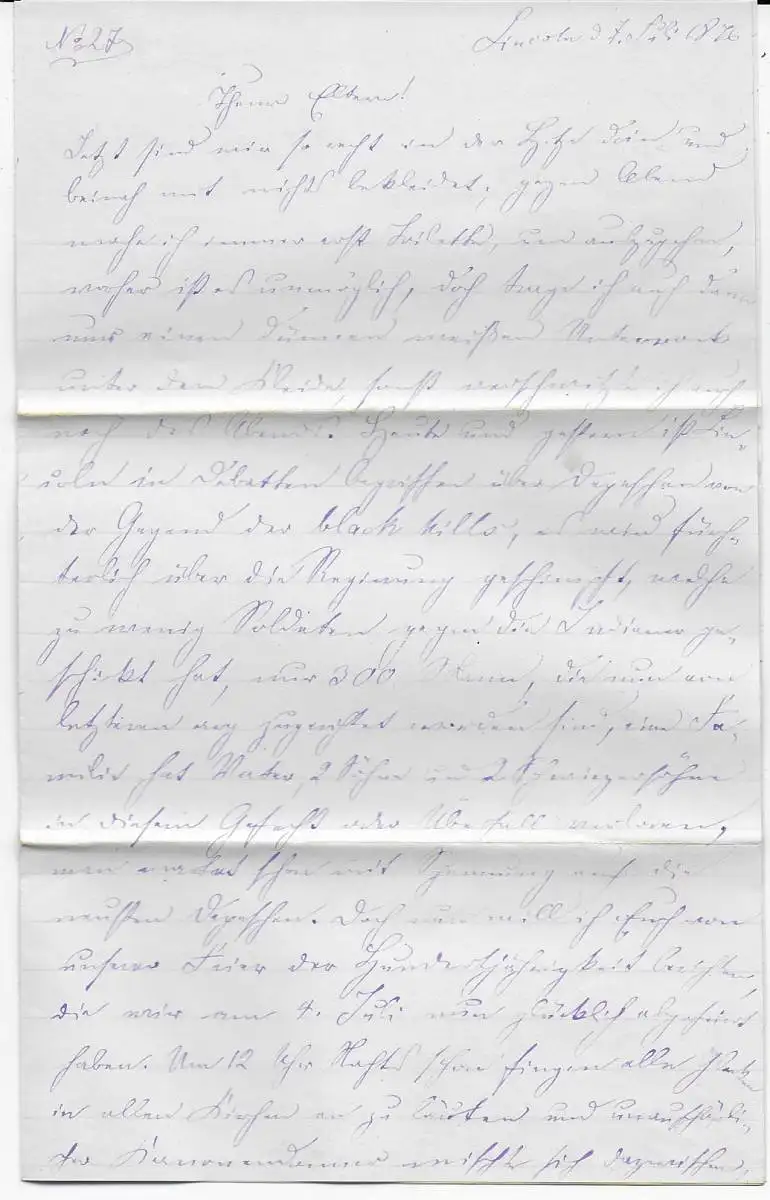 No 27
Lincoln d. 7. Juli 1876
Theure Eltern!
Jetzt sind wir so recht in der Hitze drin und
beinah mit nichts bekleidet; gegen Abend
mache ich immer erst Toilette, um auszugehen,
vorher ist es unmöglich, doch trage ich auch dann
nur einen dünnen weißen Unterrock
unter dem Kleide, sonst verschwitze ich auch
noch des Abends. Heute und gestern ist Lin-
coln in Debatten begriffen über Depeschen von
der Gegend der black hills, es wird fürch-
terlich über die Regierung geschimpft, welche
zu wenig Soldaten gegen die Indianer ge-
schickt hat, nur 300 Mann, die nun von
letzteren arg zugerichtet worden sind, eine Fa-
milie hat Vater, 2 Söhne und 2 Schwiegersöhne
in diesem Gefecht oder Überfall verloren,
man wartet schon mit Spannung auf die
neusten Depeschen. Doch nun will ich Euch von
unserer Feier der Hundertjährigkeit berichten,
die wir am 4. Juli nun glücklich abgefeiert
haben. Um 12 Uhr Nachts schon fingen alle Glocken
in allen Kirchen an zu läuten und unaufhörli-
cher Kanonendonner mischte sich dazwischen,